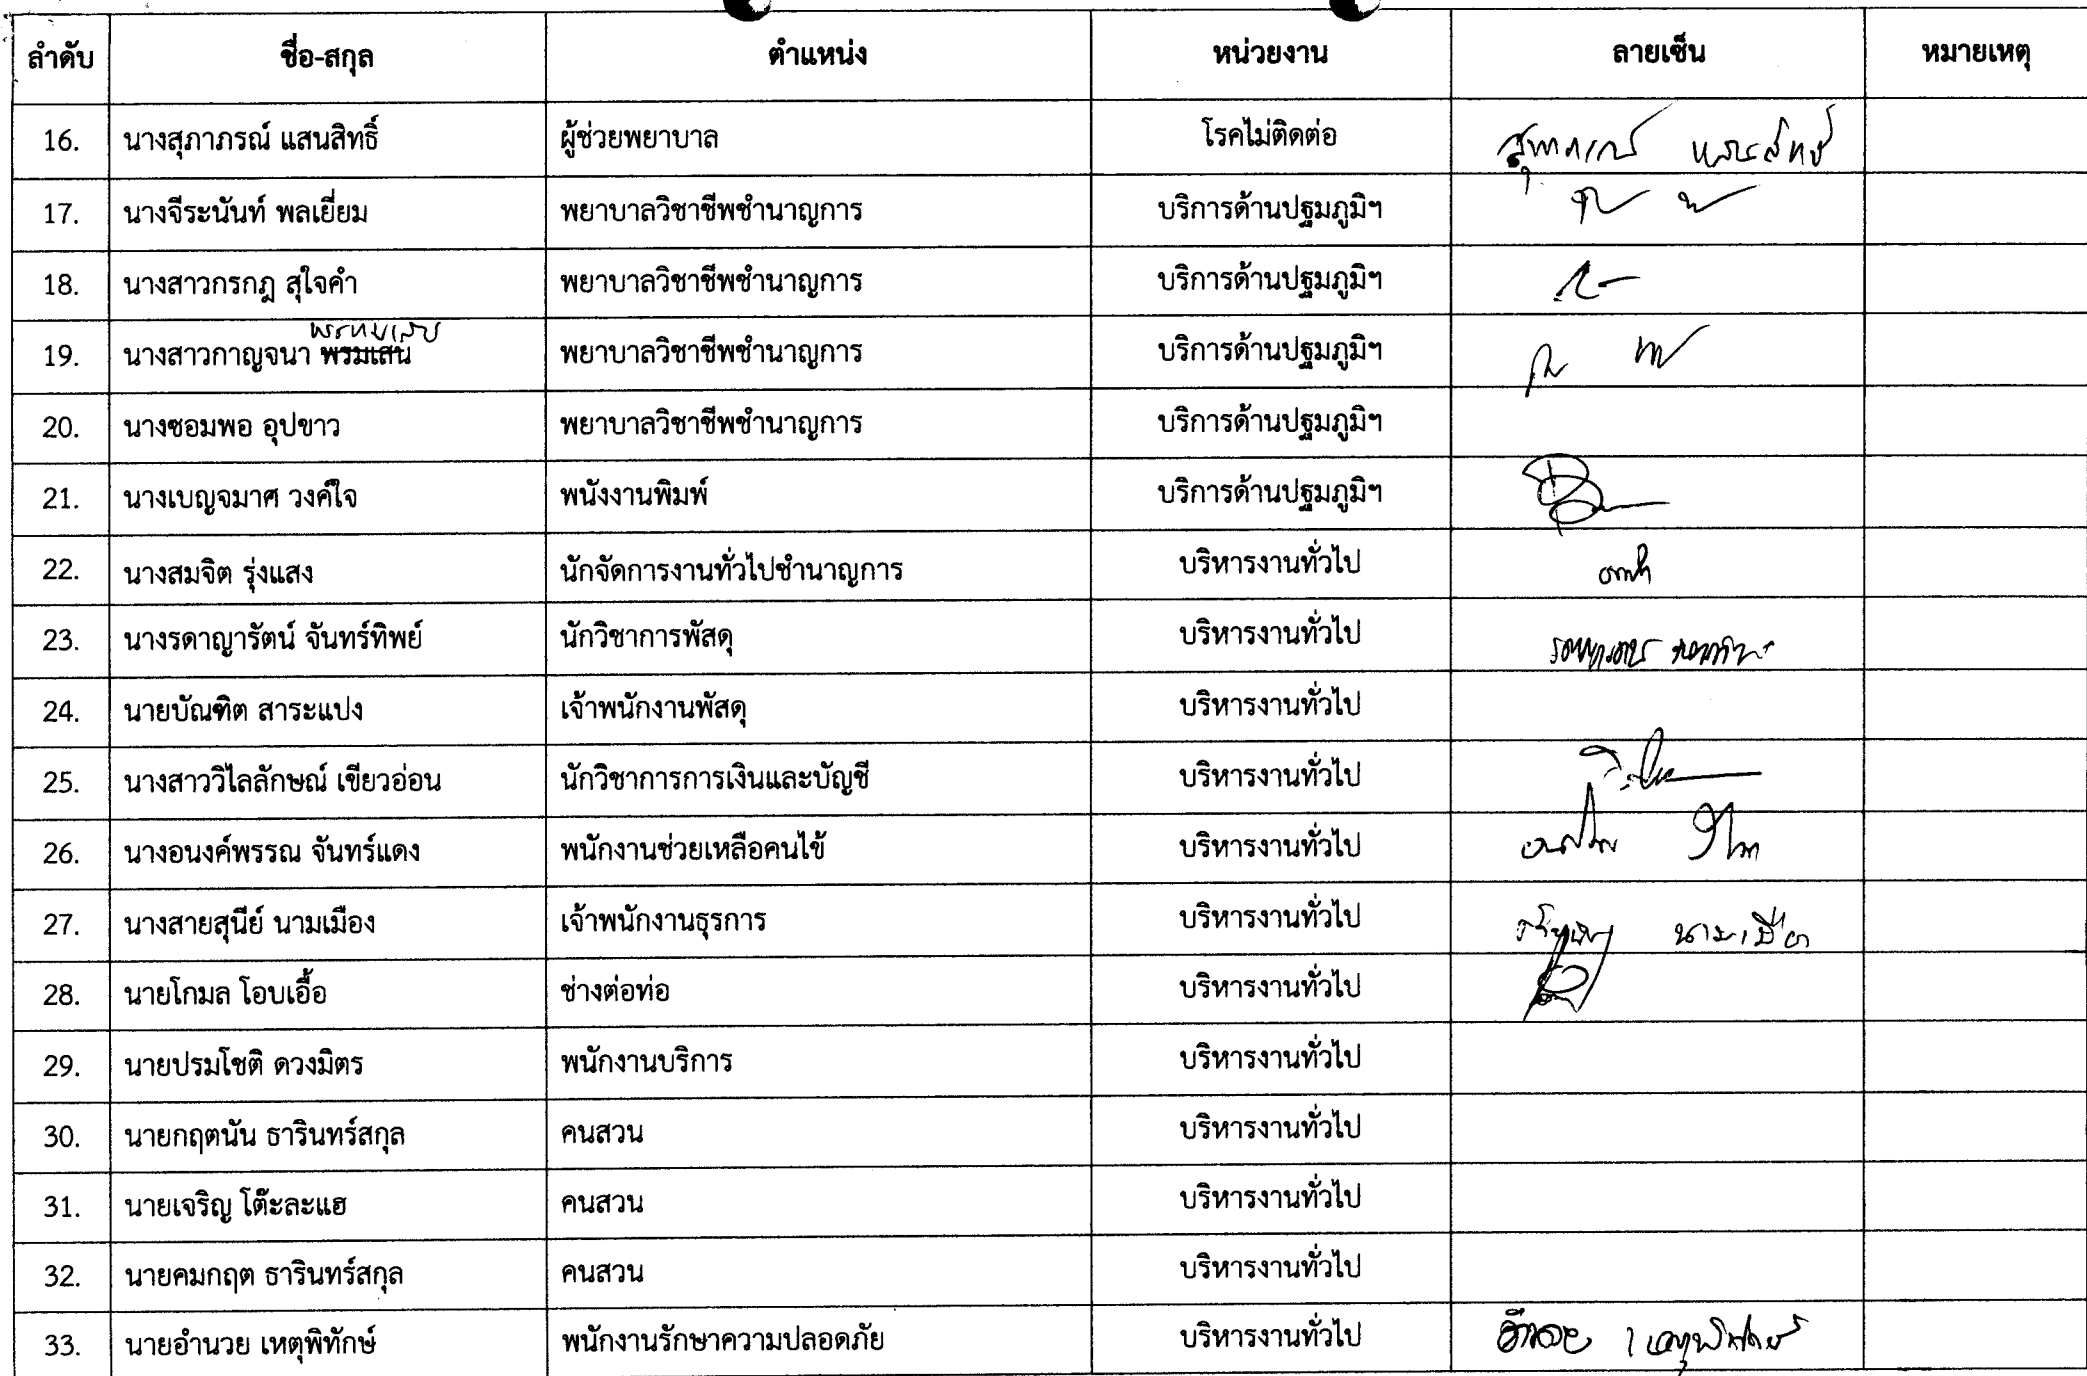 ลำดับ ชื่อ-สกุล ตำแหน่ง หน่วยงาน ลายเซ็น หมายเหตุ
16. นางสุภาภรณ์ แสนสิทธิ์ ผู้ช่วยพยาบาล โรคไม่ติดต่อ สุภาภรณ์ แสนสิทธิ์
17. นางจีระนันท์ พลเยี่ยม พยาบาลวิชาชีพชำนาญการ บริการด้านปฐมภูมิฯ
18. นางสาวกรกฎ สุใจคำ พยาบาลวิชาชีพชำนาญการ บริการด้านปฐมภูมิฯ
19. นางสาวกาญจนา พรมเสน พยาบาลวิชาชีพชำนาญการ บริการด้านปฐมภูมิฯ
20. นางซอมพอ อุปขาว พยาบาลวิชาชีพชำนาญการ บริการด้านปฐมภูมิฯ
21. นางเบญจมาศ วงค์ใจ พนังงานพิมพ์ บริการด้านปฐมภูมิฯ
22. นางสมจิต รุ่งแสง นักจัดการงานทั่วไปชำนาญการ บริหารงานทั่วไป
23. นางรดาญารัตน์ จันทร์ทิพย์ นักวิชาการพัสดุ บริหารงานทั่วไป
24. นายบัณฑิต สาระแปง เจ้าพนักงานพัสดุ บริหารงานทั่วไป
25. นางสาววิไลลักษณ์ เขียวอ่อน นักวิชาการการเงินและบัญชี บริหารงานทั่วไป
26. นางอนงค์พรรณ จันทร์แดง พนักงานช่วยเหลือคนไข้ บริหารงานทั่วไป
27. นางสายสุนีย์ นามเมือง เจ้าพนักงานธุรการ บริหารงานทั่วไป นามเมือง
28. นายโกมล โอบเอื้อ ช่างต่อท่อ บริหารงานทั่วไป
29. นายปรมโชติ ดวงมิตร พนักงานบริการ บริหารงานทั่วไป
30. นายกฤตนัน ธารินทร์สกุล คนสวน บริหารงานทั่วไป
31. นายเจริญ โต๊ะละแฮ คนสวน บริหารงานทั่วไป
32. นายคมกฤต ธารินทร์สกุล คนสวน บริหารงานทั่วไป
33. นายอำนวย เหตุพิทักษ์ พนักงานรักษาความปลอดภัย บริหารงานทั่วไป อำนวย เหตุพิทักษ์